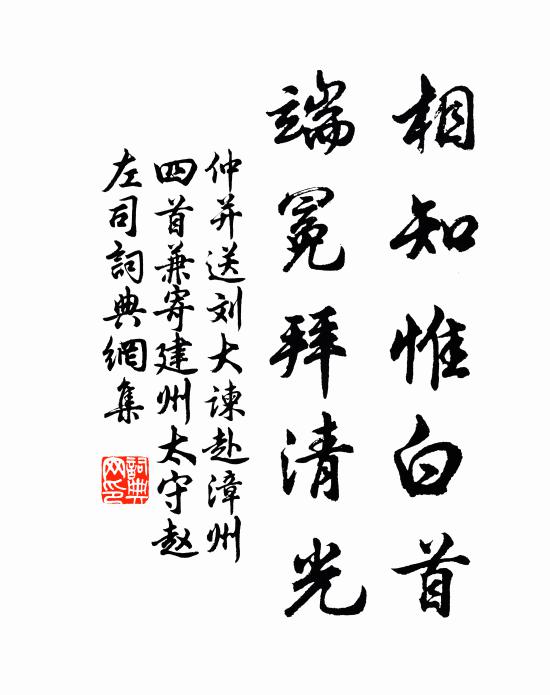 相知惟白首
端冕拜清光
仲并送刘大谏赴漳州
四首兼寄建州太守赵
左司詞典網集
詞典
网印